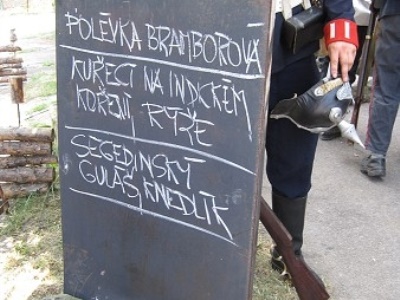 POLÉVKA BRAMBOROVÁ
KUŘECÍ NA INDICKÉM
KOŘENÍ, RÝŽE
SEGEDINSKÝ
GULÁŠ, KNEDLÍK